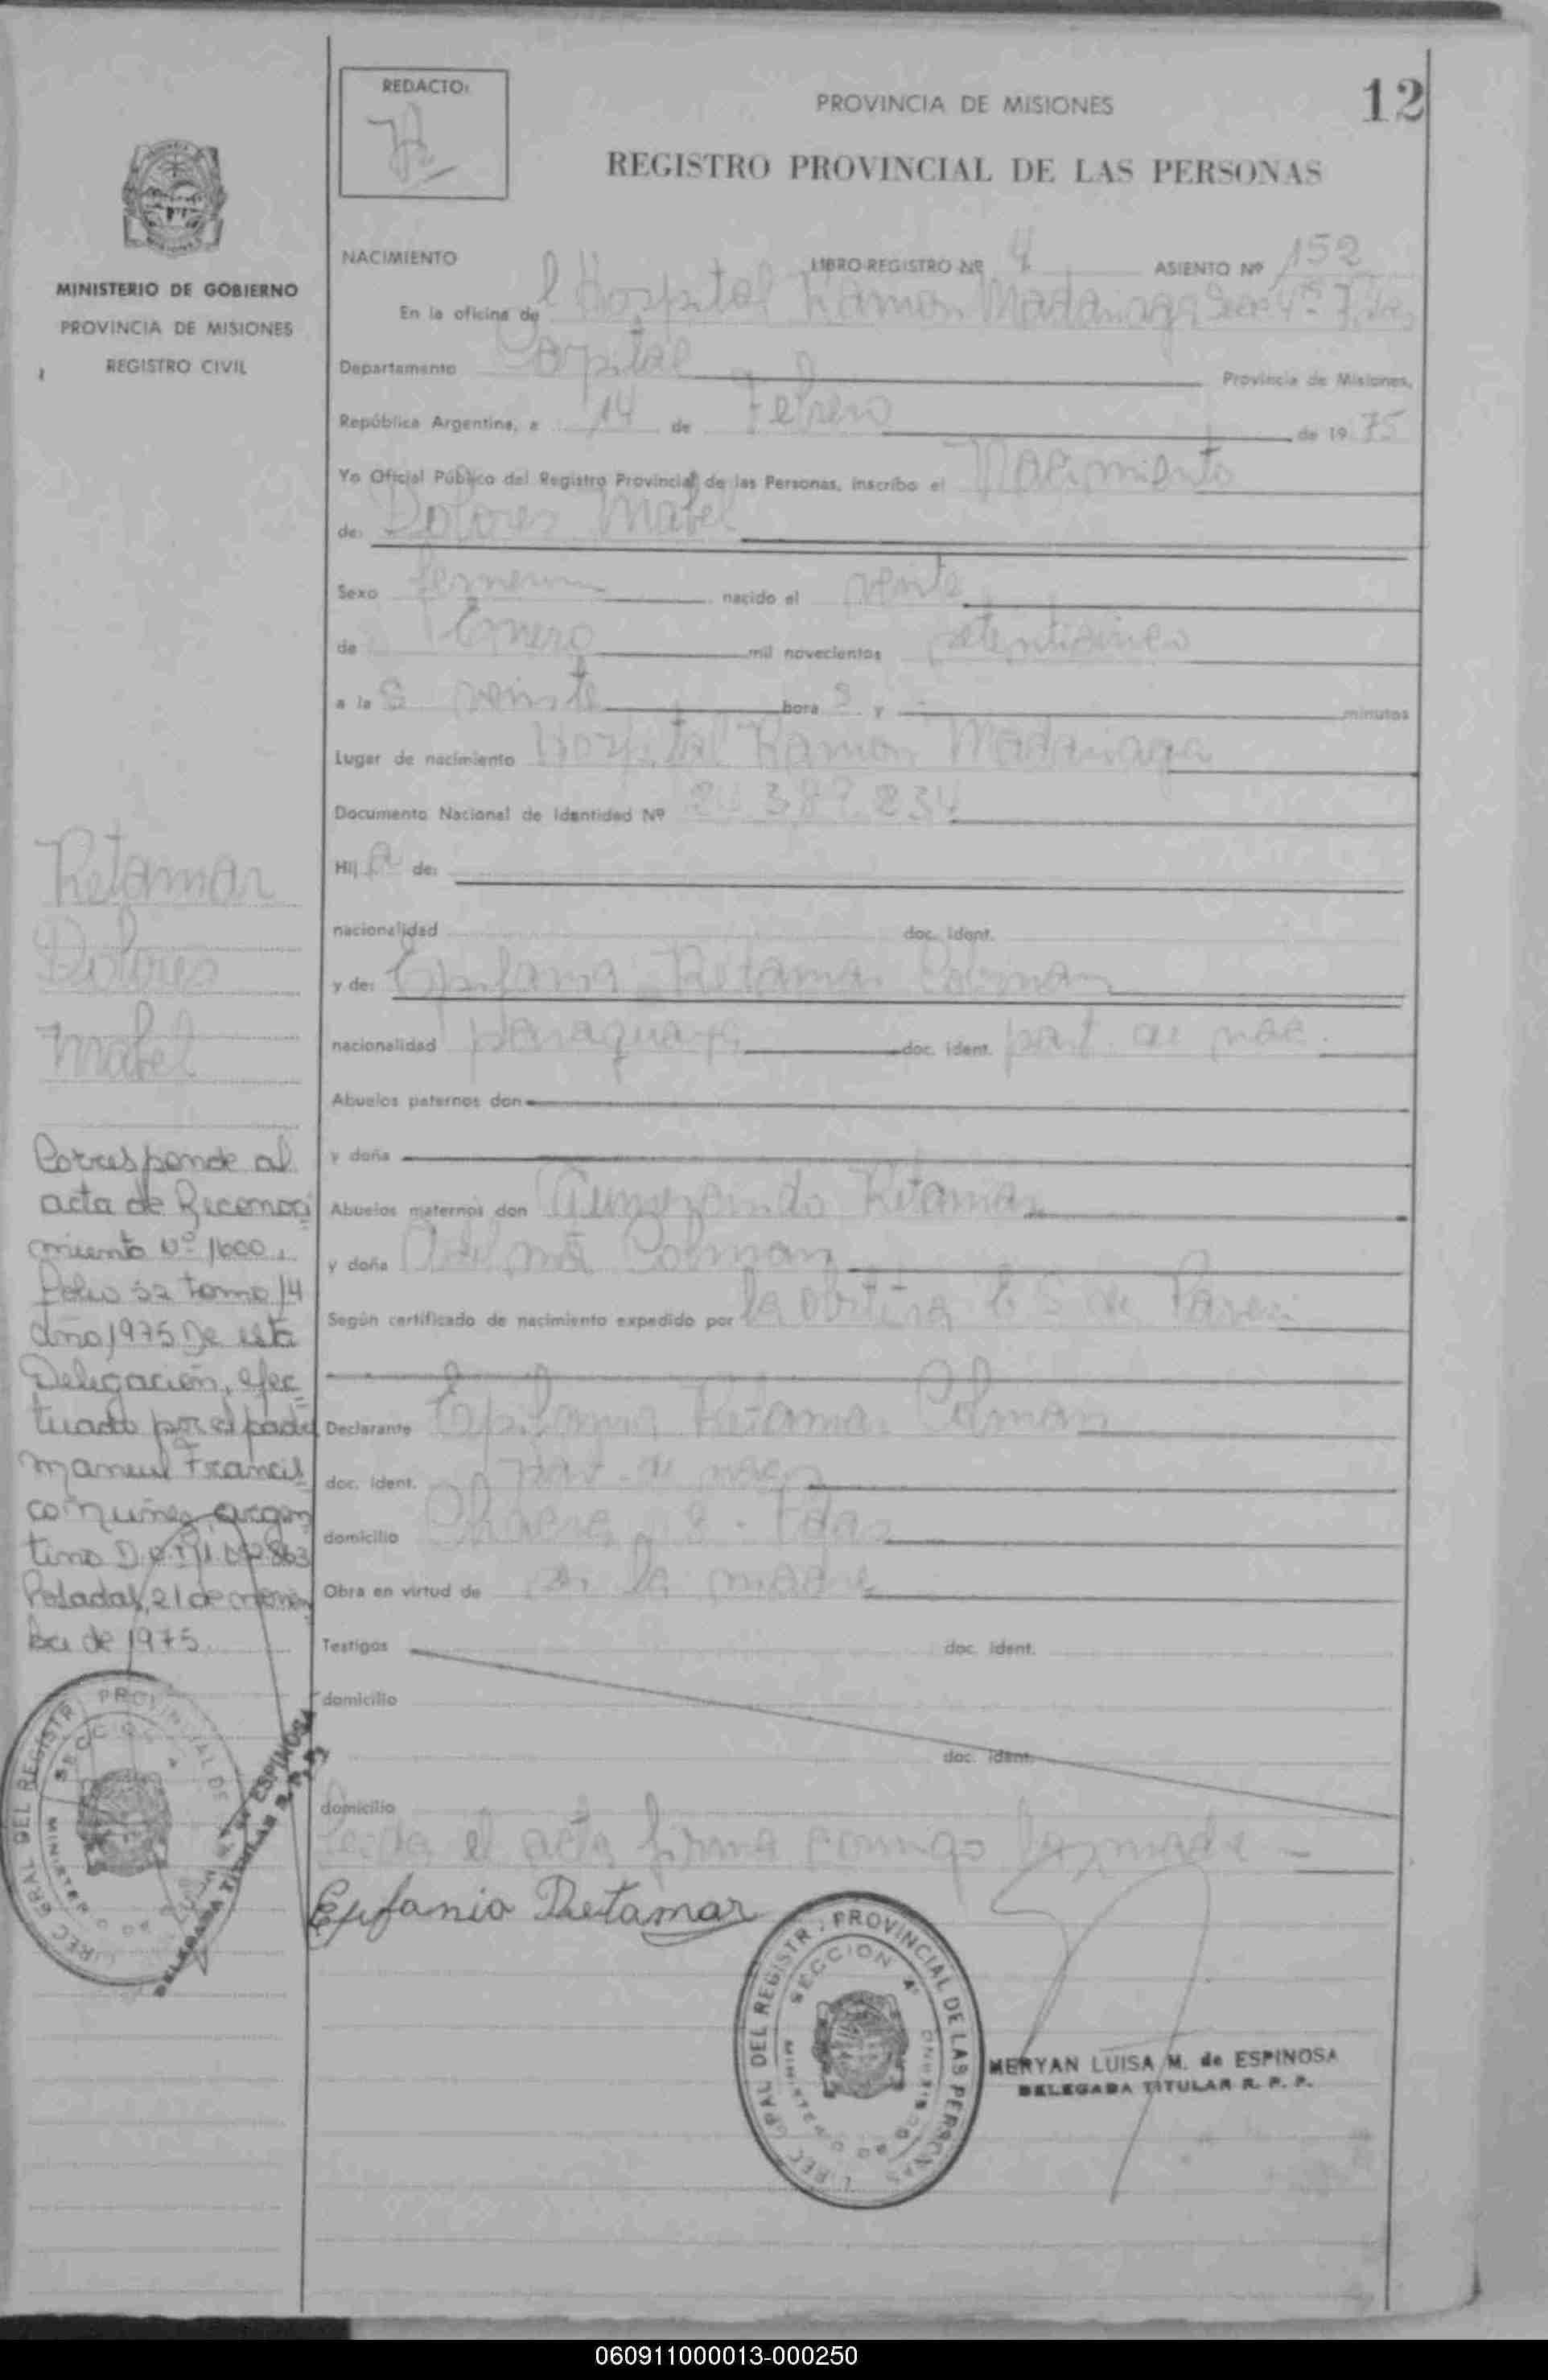 REDACTO:
PROVINCIA DE MISIONES
12
REGISTRO PROVINCIAL DE LAS PERSONAS
MINISTERIO DE GOBIERNO
PROVINCIA DE MISIONES
REGISTRO CIVIL
NACIMIENTO LIBRO-REGISTRO Nº 4 ASIENTO Nº 152
En la oficina de l Hospital Ramon Madariaga Secc 4ª
Departamento Capital Provincia de Misiones,
República Argentina, a 14 de Febrero de 19 75
Yo Oficial Público del Registro Provincial de las Personas, inscribo el Nacimiento
de: Dolores Mabel
Sexo femenino nacido el veinte
de Enero mil novecientos setenticinco
a la s veinte hora s y minutos
Lugar de nacimiento Hospital Ramon Madariaga
Documento Nacional de Identidad Nº 24.387.834
Hij a de:
nacionalidad doc. ident.
y de: Epifania Retamar Colman
nacionalidad paraguaya doc. ident. part. de nac.
Abuelos paternos don
y doña
Abuelos maternos don Gumercindo Retamar
y doña Colman
Según certificado de nacimiento expedido por la obstetra de
Declarante Epifania Retamar Colman
doc. ident. part. de nac.
domicilio Chacra
Obra en virtud de ser la madre
Testigos doc. ident.
domicilio
doc. ident.
domicilio
Leida el acta firma conmigo la madre -
Epifania Retamar
Retamar
Dolores
Mabel
Corresponde al
acta de Reconoci
miento Nº 1600,
Folio 32 tomo 14
año 1975 De esta
Delegación, efec
tuado por el padre
Manuel Francis
co Nuñez, argen
tino
Posadas, 21 de
bre de 1975.
DIREC. GRAL. DEL REGISTR. PROVINCIAL DE LAS PERSONAS
SECCION 4ª
MINISTERIO DE GOBIERNO
MERYAN LUISA M. de ESPINOSA
DELEGADA TITULAR R. P. P.
DIREC. GRAL. DEL REGISTR. PROVINCIAL DE
SECCION 4
de ESPINOSA
DELEGADA TITULAR R. P. P.
060911000013-000250